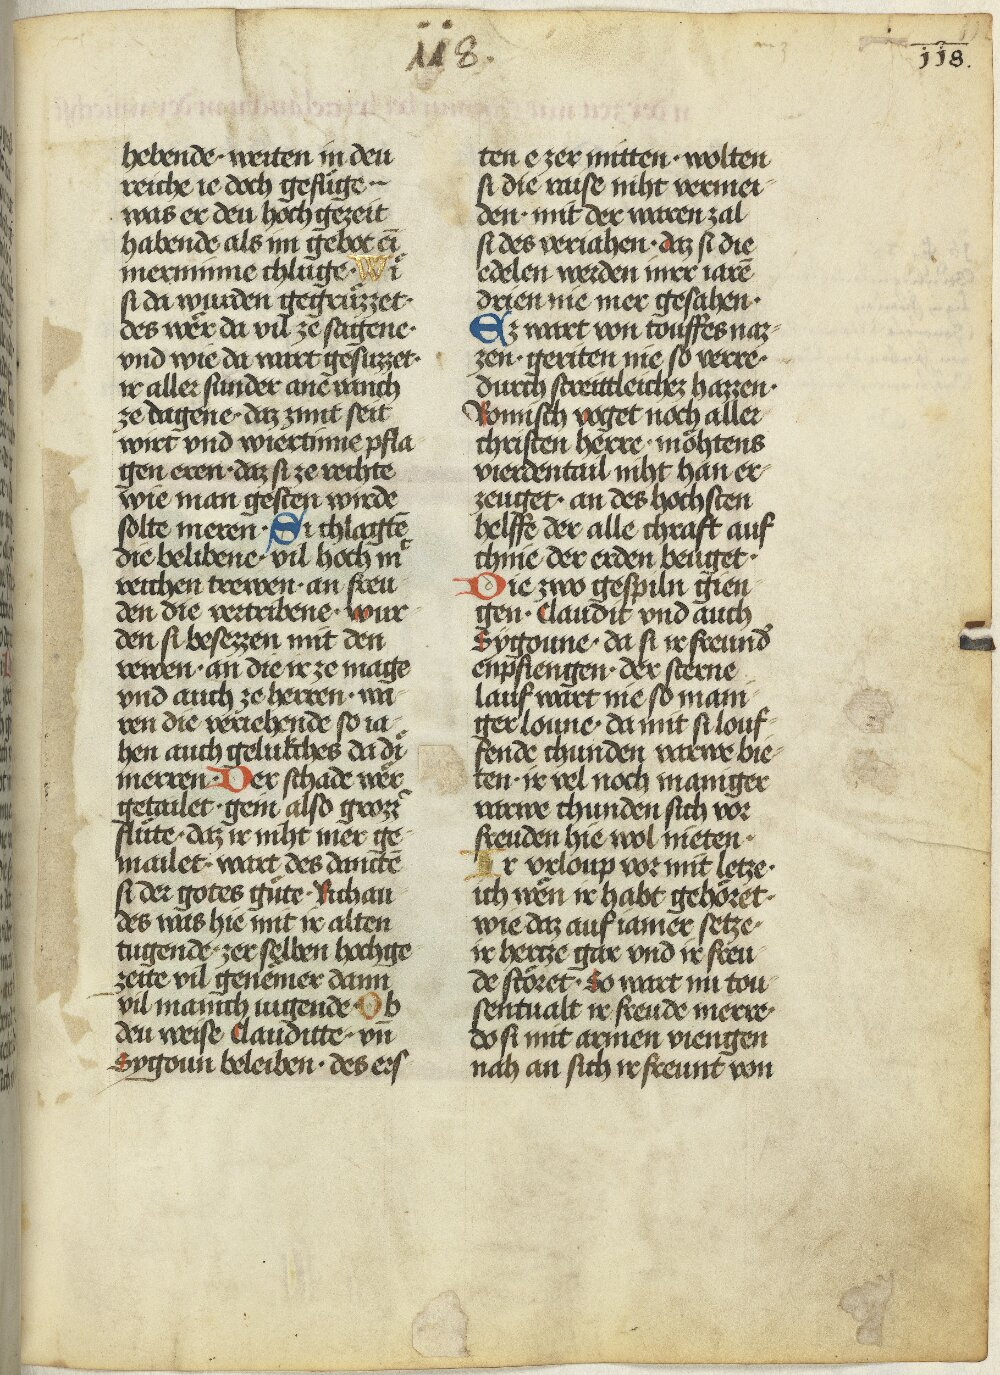 118.
118.
hebende· weiten in den
reiche ie doch gefüge~
was er den hoch gezeit
habende als im gebot ei
merminne chluge· Wi
si da wurden gegrüzzet·
des wer da vil ze sagene·
vnd wie da wart gesuzzet·
ir aller sunder ane wanch
ze dagene· daz zimt seit
wirt vnd wiertinne pfla
gen eren· daz si ze rechte
wie man gesten wirde
solte meren· Si chlagtē
die belibene· vil hoch mᵗ
reichen trewen· an freu
den die vertribene· wur
den si besezzen mit den
rewen· an die ir ze mage
vnd auch ze herren· wa
ren die veriehende so ia
hen auch gelukches da di
merren· Der schade wer
getailet· gein also grozz
flüte· daz ir niht mer ge
mailet· wart des danctē
si der gotes güte· Richau
des was hie mit ir alten
tugende· zer selben hochge
zeite vil genemer dann
vil manich iugende· Ob
den weise Clauditte· vn̄
Sygoun beleiben· des ers
ten e zer mitten· wolten
si die raise niht vermei
den· mit der waren zal
si des veriahen· daz si die
edelen werden inrr iarē
drien nie mer gesahen·
Ez wart von touffes naz
zen· geriten nie so verre·
durch streittleichez hazzen·
Romisch voget noch aller
christen herre· möhtens
vierdentail niht han er
zeuget· an des hochsten
helffe der alle chraft auf
chnie der erden beuget·
Die zwo gespiln gien
gen· Claudit vnd auch
Sygoune· da si ir freund
enpfiengen· der sterne
lauf wart nie so mani
ger loune· da mit si louf
fende chunden varwe bie
ten· ir vel noch maniger
varwe chunden sich vor
freuden hie wol nieten·
Ir vrloup vor mit letze·
ich wen ir habt gehöret·
wie daz auf iamer setze·
ir hertze gar vnd ir freu
de störet· So wart nu tou
sentualt ir freude merre·
do si mit armen viengen
nah an sich ir freunt von